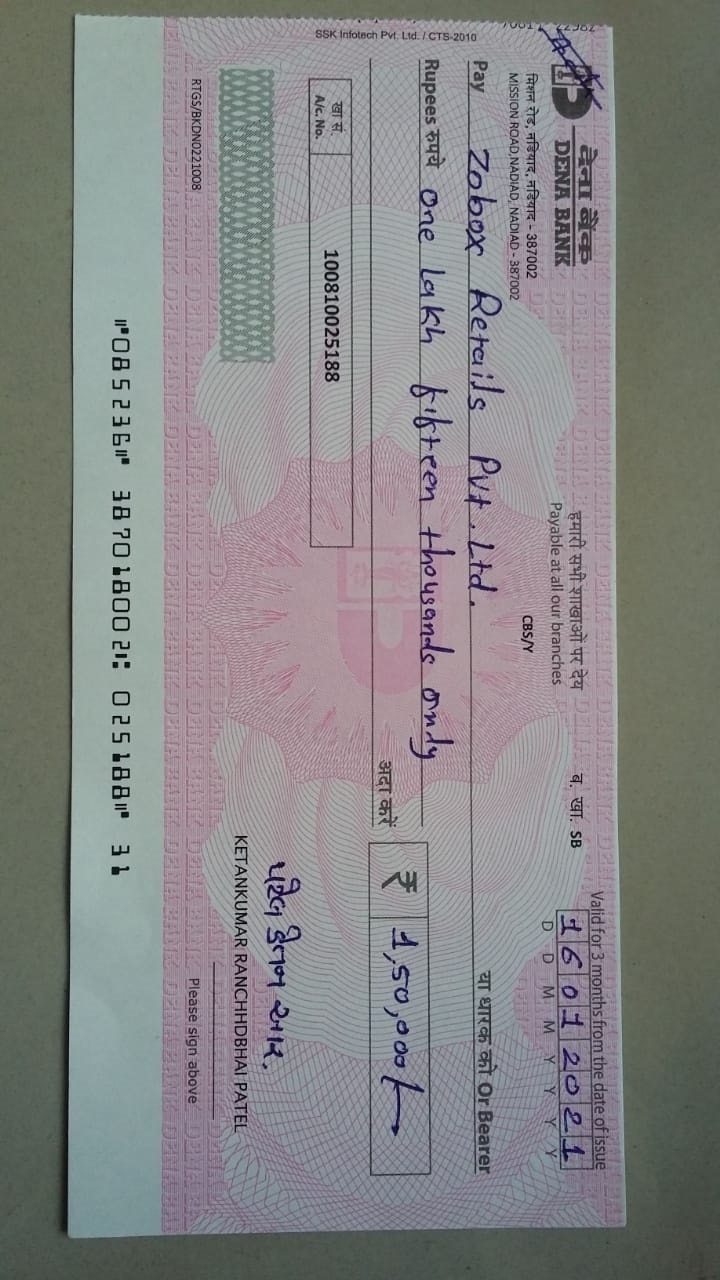 देना बैंक
DENA BANK
मिशन रोड, नडियाद, नडियाद - 387002
MISSION ROAD,NADIAD, NADIAD - 387002
हमारी सभी शाखाओं पर देय
Payable at all our branches
CBS/Y
ब. खा. SB
Valid for 3 months from the date of issue
16012021
D D M M Y Y Y Y
Pay Zobox Retails Pvt. Ltd. या धारक को Or Bearer
Rupees रुपये one lakh fifteen thousands only
अदा करें ₹ 1,50,000/-
खा सं.
A/c. No. 100810025188
પટેલ કેતન આર.
KETANKUMAR RANCHHDBHAI PATEL
Please sign above
RTGS/BKDN0221008
SSK Infotech Pvt. Ltd. / CTS-2010
⑈085236⑈ 387018002⑆ 025188⑈ 31